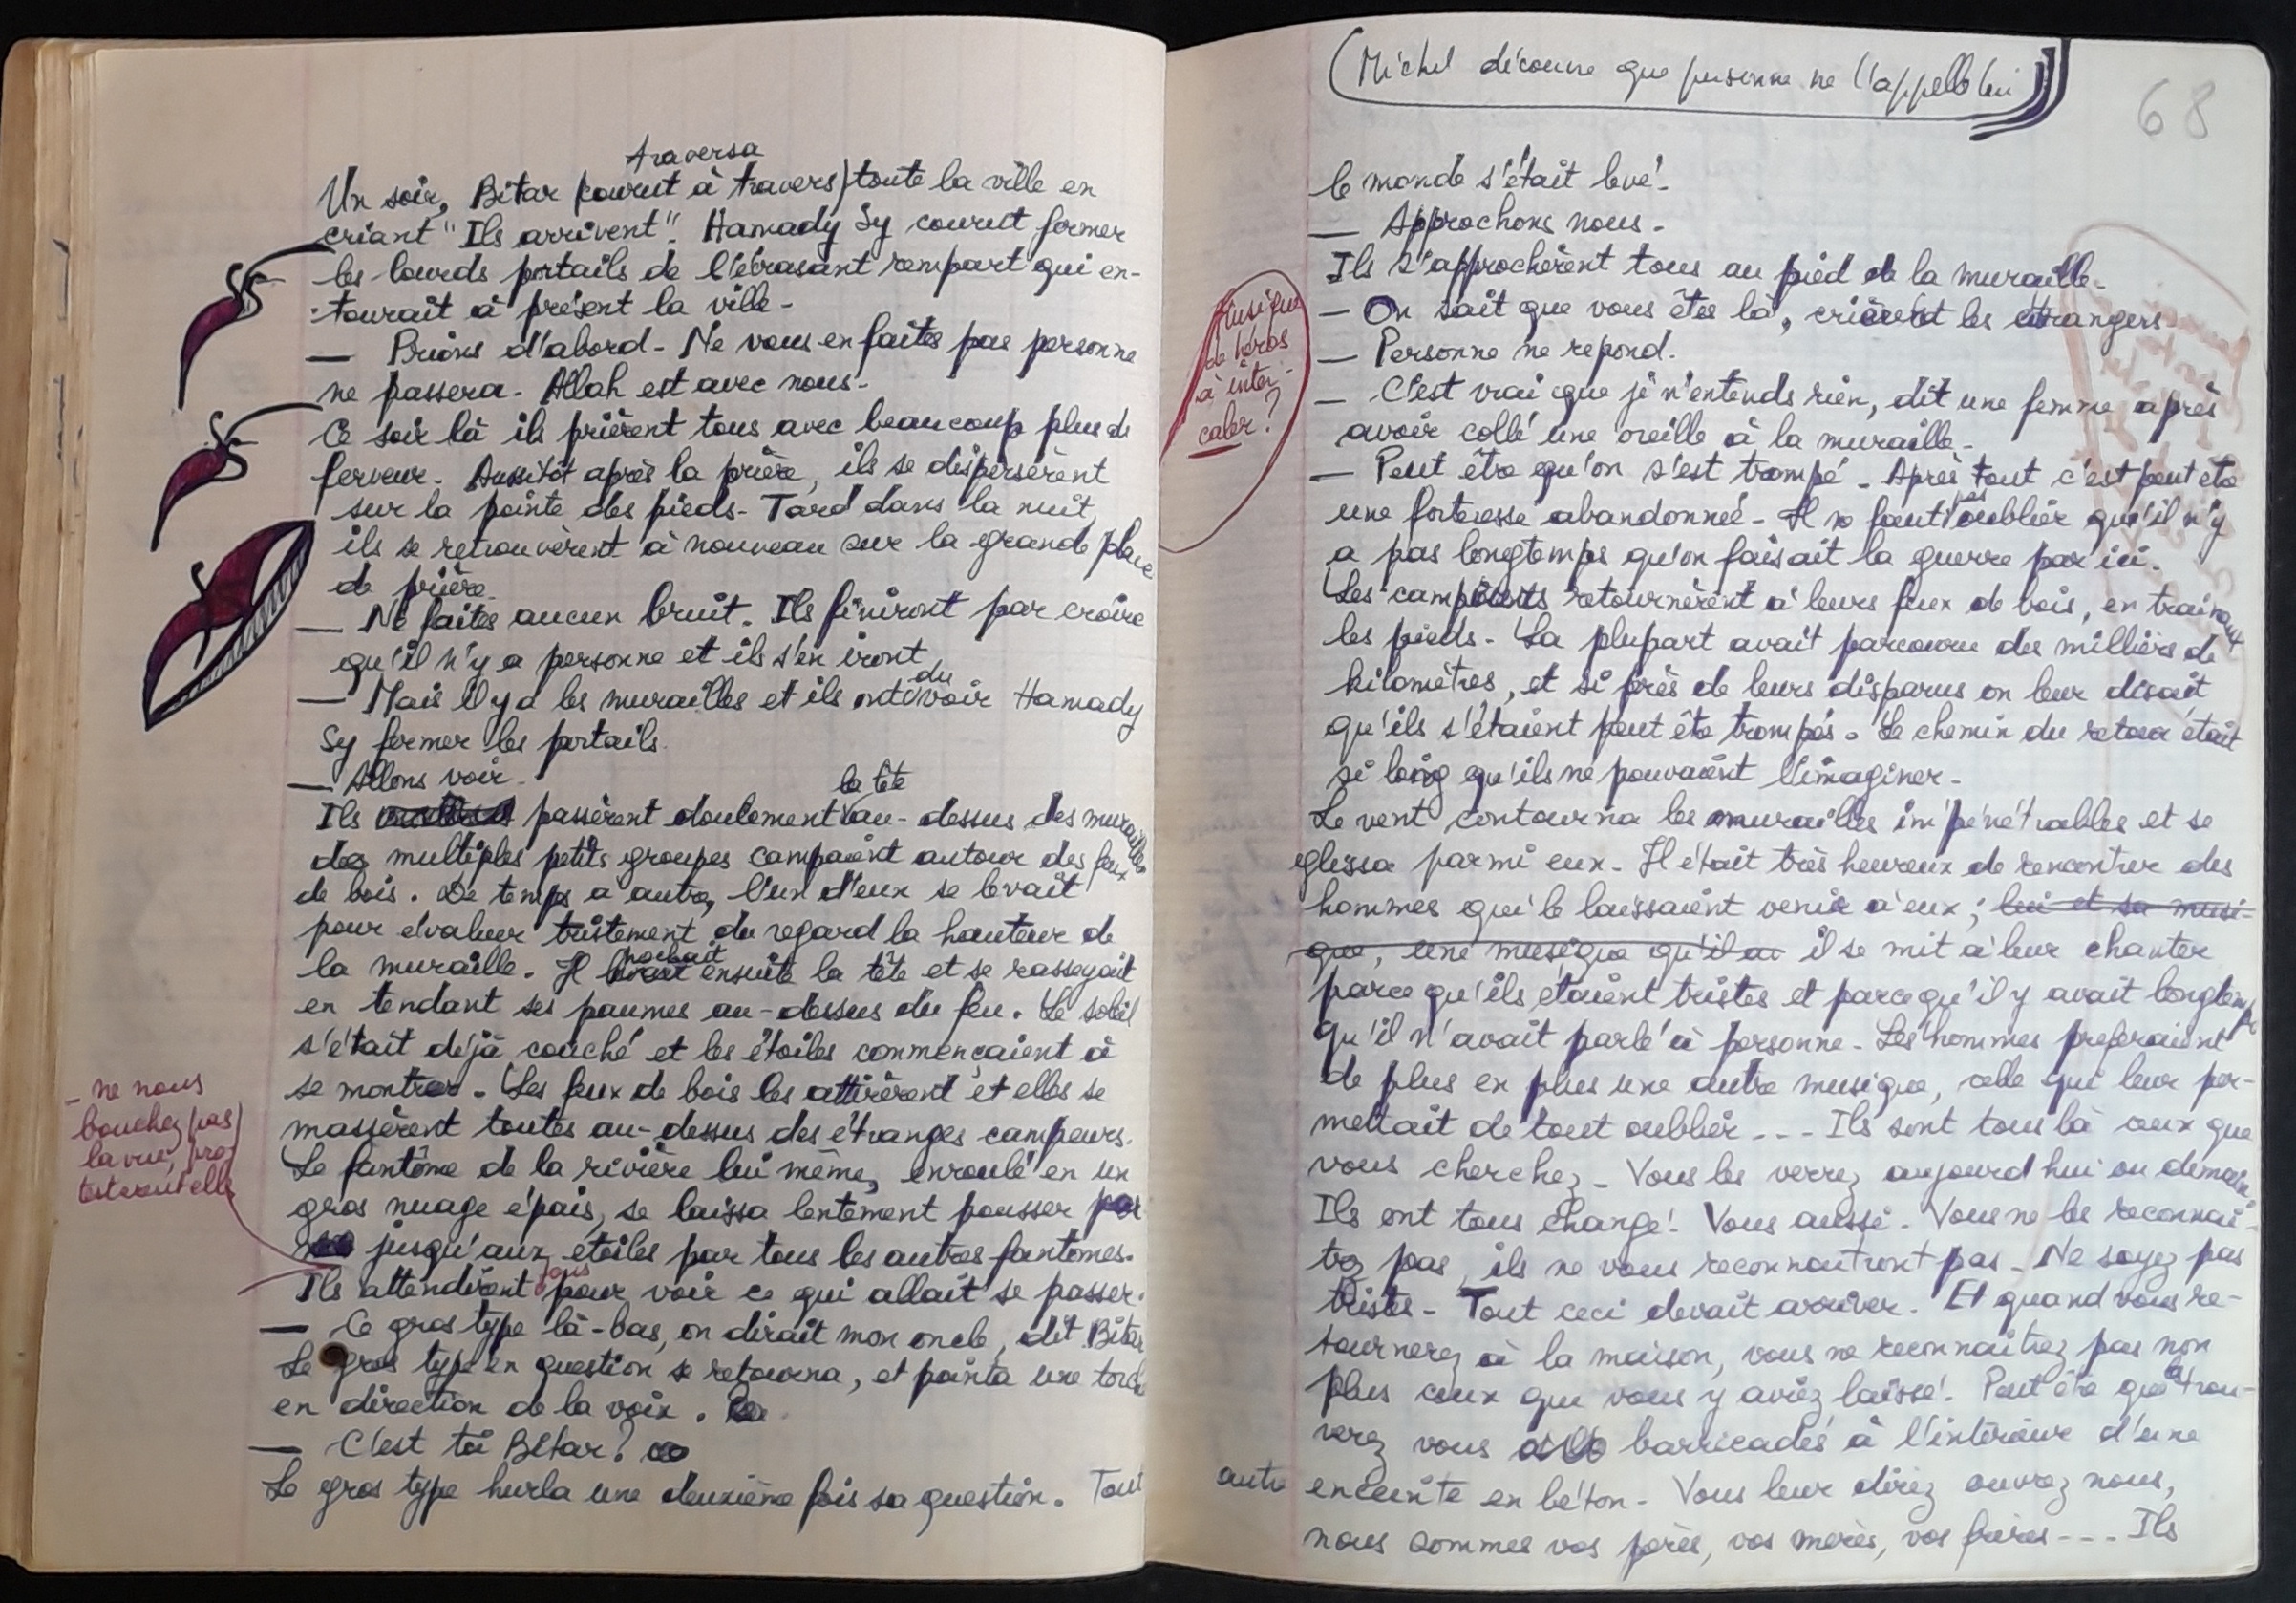 traversa
Un soir, Bitar (courut à travers) toute la ville en
criant "Ils arrivent". Hamady Sy courut fermer
les lourds portails de l'écrasant rempart qui en-
tourait à présent la ville-
— Prions d'abord- Ne vous en faites pas personne
ne passera- Allah est avec nous-
Ce soir là ils prièrent tous avec beaucoup plus de
ferveur- Aussitôt après la prière, ils se dispersèrent
sur la pointe des pieds- Tard dans la nuit,
ils se retrouvèrent à nouveau sur la grande place
de prière-
— Ne faites aucun bruit. Ils finiront par croire
qu'il n'y a personne et ils s'en iront
du
— Mais il y a les murailles et ils ont voir Hamady
Sy fermer les portails.
— Allons voir-
la tête
Ils passèrent doulement au-dessus des murailles
des multiples petits groupes campaient autour des feux
de bois. De temps à autre, l'un d'eux se levait
pour évaluer tristement du regard la hauteur de
hochait
la muraille. Il ensuite la tête et se rasseyait
en tendant ses paumes au-dessus du feu. Le soleil
s'était déjà couché et les étoiles commençaient à
se montrer- Les feux de bois les attirèrent et elles se
massèrent toutes au-dessus des étranges campeurs.
- ne nous
bouchez pas
la vue, pro-
testèrent elles
Le fantôme de la rivière lui même, enroulé en un
gros nuage épais, se laissa lentement pousser
jusqu'aux étoiles par tous les autres fantômes.
tous
Ils attendirent pour voir ce qui allait se passer.
— Ce gros type là-bas, on dirait mon oncle, dit Bitar
Le gros type en question se retourna, et pointa une torche
en direction de la voix.
— C'est toi Bitar?
Le gros type hurla une deuxième fois sa question. Tout
(Michel découvre que personne ne l'appelle lui)
68
le monde s'était levé-
— Approchons nous-
Ils s'approchèrent tous au pied de la muraille-
— On sait que vous êtes là, crièrent les étrangers
— Personne ne repond.
— C'est vrai que je n'entends rien, dit une femme après
avoir collé une oreille à la muraille-
Musique
de héros
à inter-
caler?
— Peut être qu'on s'est trompé- Après tout c'est peut etre
pas
une forteresse abandonnée- Il ne faut oublier qu'il n'y
a pas longtemps qu'on faisait la guerre par ici.
Les campeurs retournèrent à leurs feux de bois, en trainant
les pieds- La plupart avait parcouru des milliers de
kilomètres, et si près de leurs disparus on leur disait
qu'ils s'étaient peut être trompés. Le chemin du retour était
si long qu'ils ne pouvaient l'imaginer-
Le vent contourna les murailles impénétrables et se
glissa parmi eux- Il était très heureux de rencontrer des
hommes qui le laissaient venir à eux; lui et sa musi-
que, une musique qu'il a il se mit à leur chanter
parce qu'ils étaient tristes et parce qu'il y avait longtemps
qu'il n'avait parlé à personne- Les hommes preferaient
de plus en plus une autre musique, celle qui leur per-
mettait de tout oublier--- Ils sont tous là ceux que
vous cherchez- Vous les verrez aujourd'hui ou demain
Ils ont tous changé! Vous aussi- Vous ne les reconnai-
trez pas, ils ne vous reconnaitront pas- Ne soyez pas
tristes- Tout ceci devait arriver- Et quand vous re-
tournerez à la maison, vous ne reconnaitrez pas non
plus ceux que vous y aviez laissé! Peut être que trou-
verez vous barricadés à l'intérieur d'une
autre enceinte en béton- Vous leur direz ouvrez nous,
nous sommes vos pères, vos mères, vos frères--- Ils